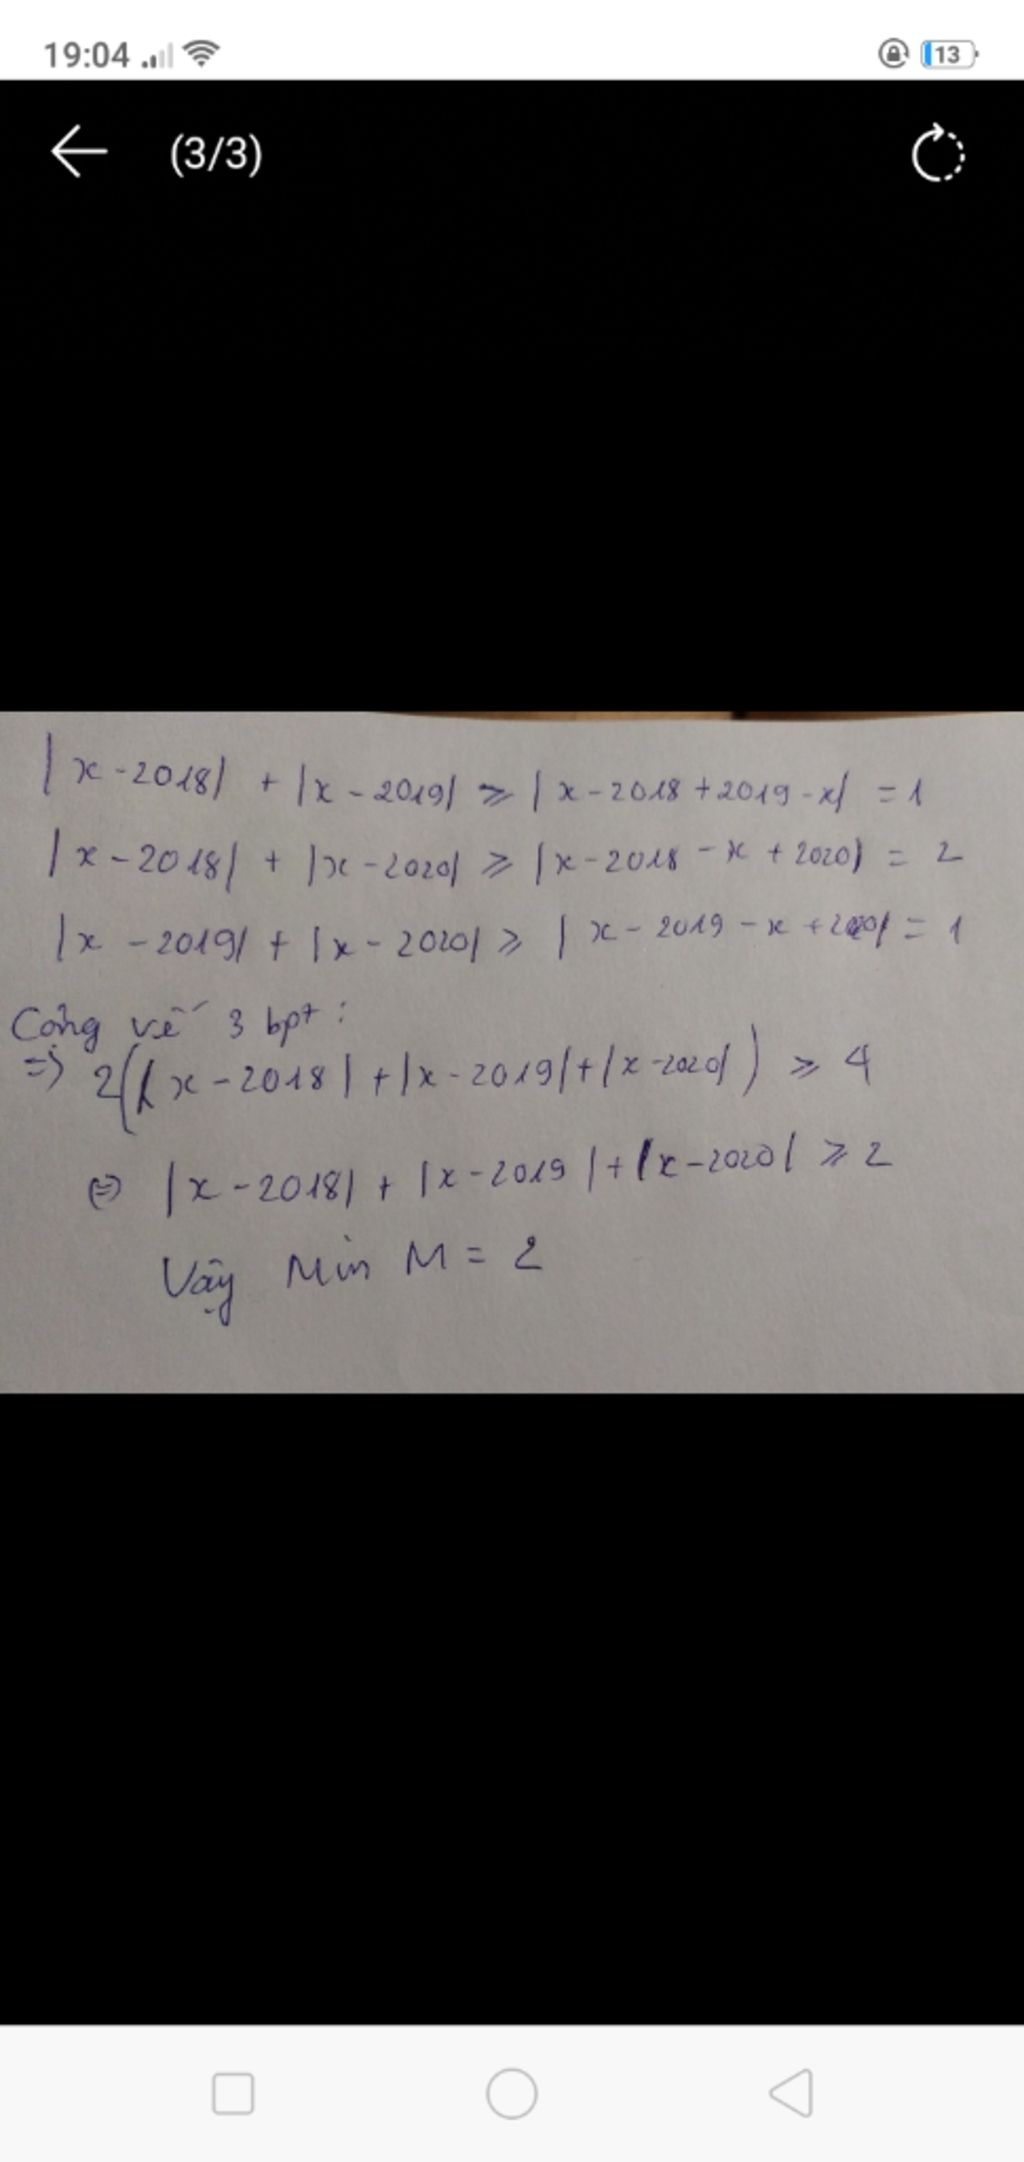 19:04
13
(3/3)
|x-2018| + |x-2019| ≥ |x-2018+2019-x| = 1
|x-2018| + |x-2020| ≥ |x-2018-x+2020| = 2
|x-2019| + |x-2020| ≥ |x-2019-x+2020| = 1
Cộng vế 3 bpt :
=> 2(|x-2018| + |x-2019| + |x-2020|) ≥ 4
(=) |x-2018| + |x-2019| + |x-2020| ≥ 2
Vậy Min M = 2